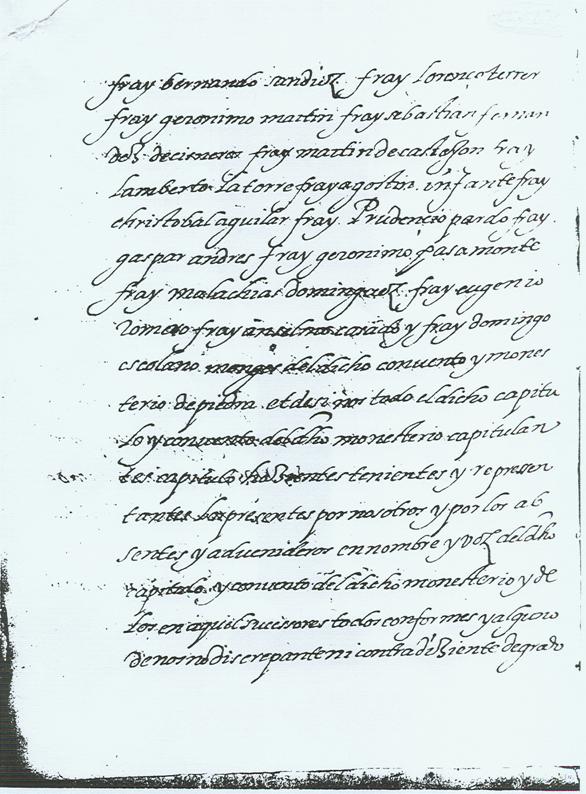 fray bernardo sandiez fray lorenço ferrer
fray geronimo martin fray sebastian fernan
dez de cisneros fray martin de castejon fray
lamberto la torre fray agostin infante fray
christobal aguilar fray Prudencio pardo fray
gaspar andres fray geronimo pasamonte
fray malachias dominguez fray eugenio
Romero fray anselmo y fray domingo
escolano monges del dicho convento y mones
terio de piedra et desi nos todo el dicho capitu
lo y convento del dho monesterio capitulan
tes capitulo hazientes tenientes y represen
tantes los presentes por nosotros y por los ab
sentes y advenideros en nombre y voz del dho
capitulo y convento del dicho monesterio y de
los en aquel sucesores todos conformes y alguno
de nos no discrepante ni contradeziente de grado